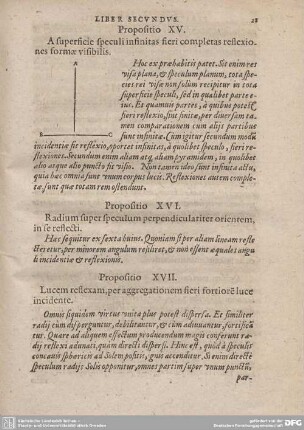 LIBER SECVNDVS. 28
Propositio XV.
A superficie speculi infinitas fieri completas reflexio-
nes formæ visibilis.
A
B C
Hæc ex præhabitis patet. Sit enim res
visa plana, & speculum planum, tota spe-
ciet rei visæ non solum recipitur in tota
superficie speculi, sed in qualibet parte e-
ius. Et quamuis partes, à quibus potest
fieri reflexio, sint finitæ, per diuersam ta-
men comparationem cum alijs partibus
sunt infinitæ. Cum igitur secundum modũ
incidentiæ sit reflexio, oportet infinitas, à quolibet speculo, fieri re-
flexiones. Secundum enim aliam atq, aliam pyramidem, in quolibet
alio atque alio puncto fit visio. Non tamen ideo sunt infinitæ actu,
quia hæc omnia sunt vnum corpus lucis. Reflexiones autem comple-
tæ sunt quæ totam rem ostendunt.
Propositio XVI.
Radium super speculum perpendiculariter orientem,
in se reflecti.
Hæc sequitur ex sexta huius. Quoniam si per aliam lineam refle
cteretur, per minorem angulum resiliret, & non essent æquales angu
li incidentiæ & reflexionis.
Propositio XVII.
Lucem reflexam, per aggregationem fieri fortiorẽ luce
incidente.
Omnis siquidem virtus vnita plus potest dispersa. Et similiter
radij cum disperguntur, debilitantur, & cum adinuantur, fortifică
tur. Quare ad aliquem effectum producendum magis conferunt ra-
dij reflexi adunati, quam directi dispersi. Hinc est, quòd à speculis
concauis sphæricis ad Solem positis, ignis accenditur. Si enim directè
speculum radijs Solis opponitur, omnes partim super vnum punctũ,
par-